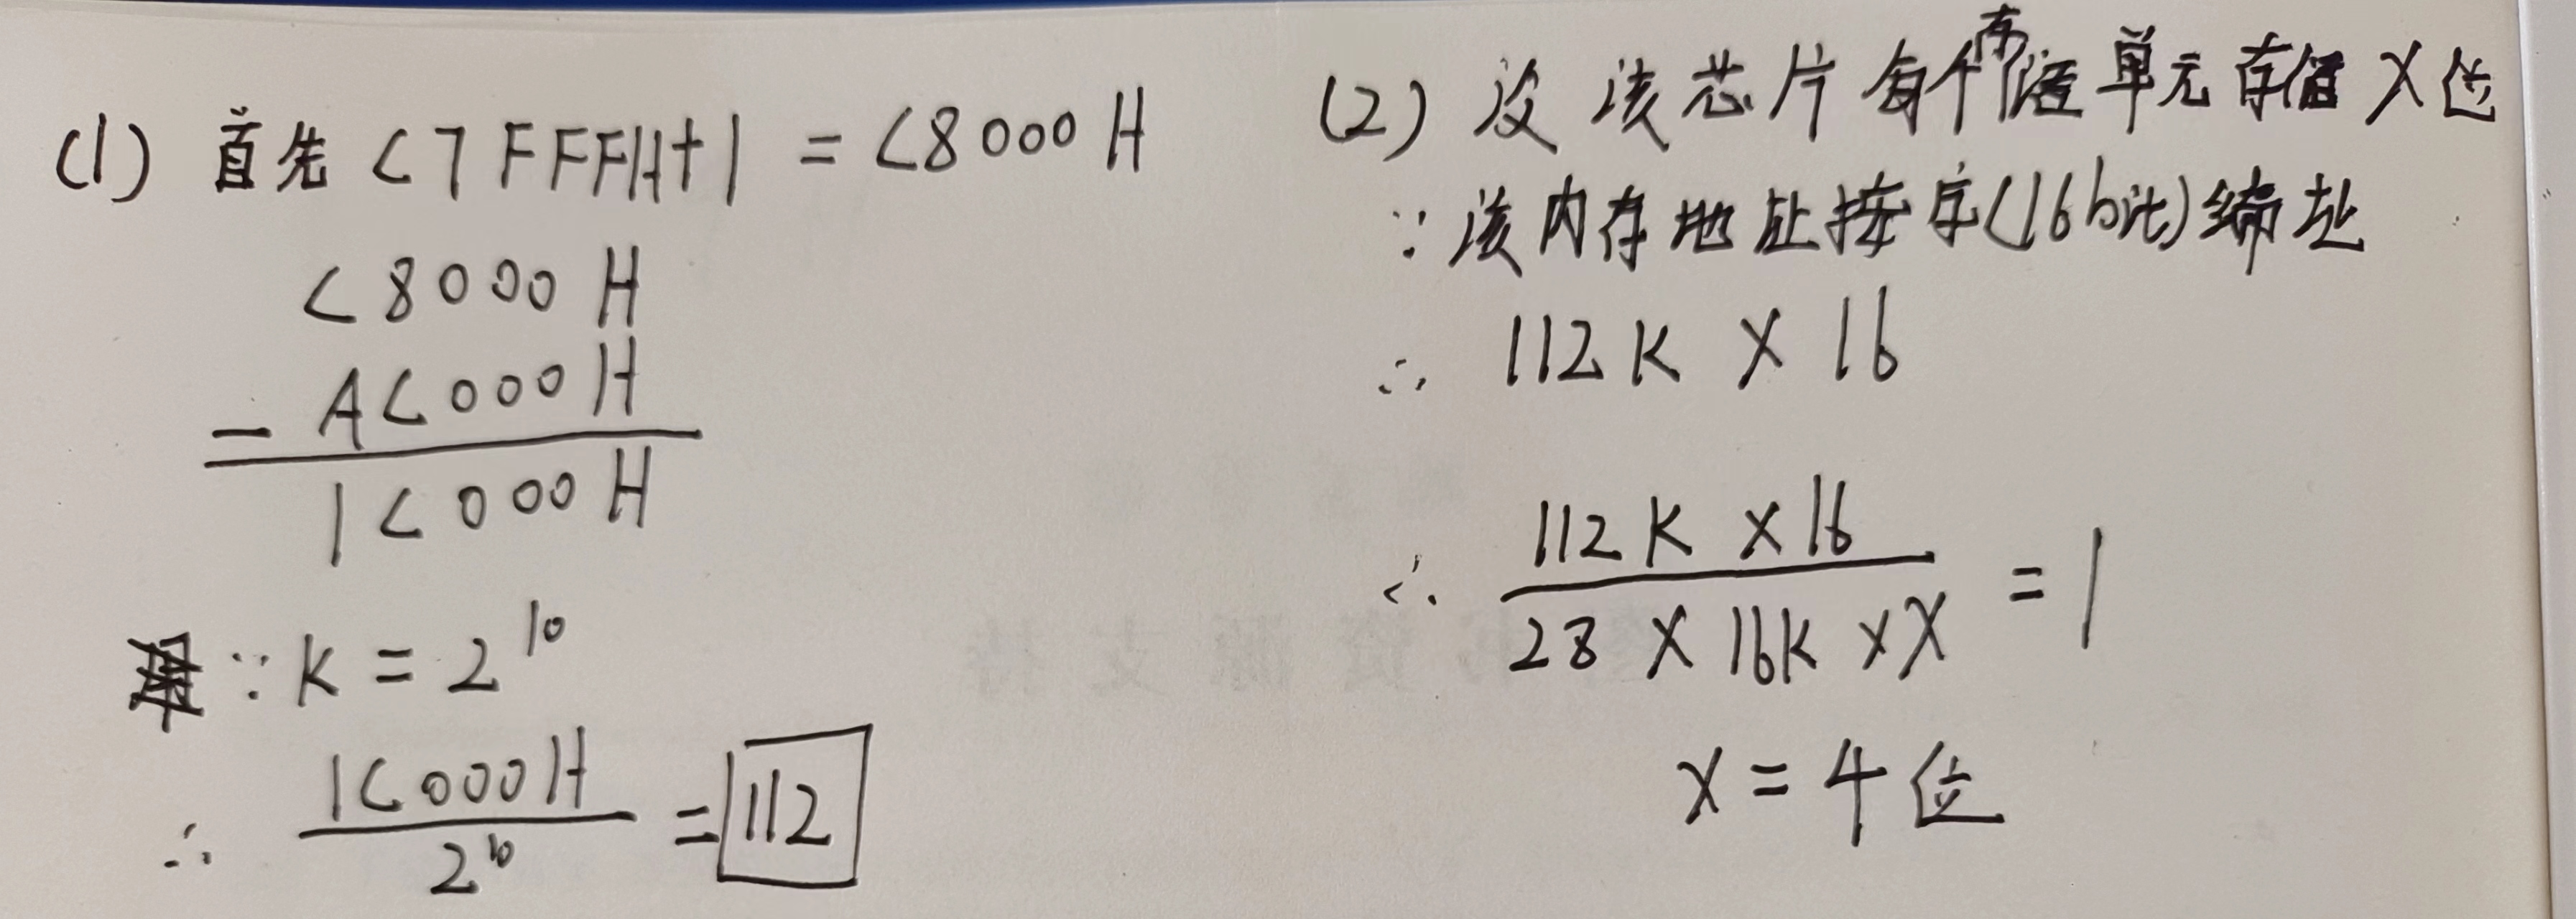 (1) 首先 C7FFFH+1 = C8000H
C8000H
- AC000H
1C000H
∵ K = 2^10
∴ 1C000H / 2^10 = 112
(2) 设该芯片每个存储单元存储 X 位
∵ 该内存地址按字(16bit)编址
∴ 112K × 16
∴ 112K × 16 / 28 × 16K × X = 1
X = 4 位